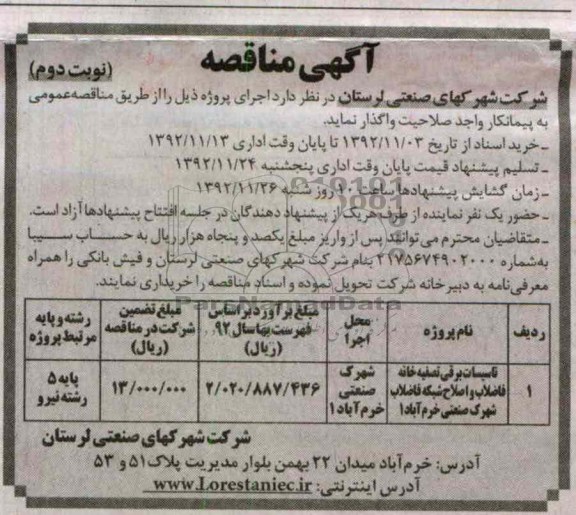 آگهی مناقصه
(نوبت دوم)
شرکت شهرکهای صنعتی لرستان در نظر دارد اجرای پروژه ذیل را از طریق مناقصه عمومی
به پیمانکار واجد صلاحیت واگذار نماید.
ـ خرید اسناد از تاریخ ۱۳۹۲/۱۱/۰۳ تا پایان وقت اداری ۱۳۹۲/۱۱/۱۳
ـ تسلیم پیشنهاد قیمت پایان وقت اداری پنجشنبه ۱۳۹۲/۱۱/۲۴
ـ زمان گشایش پیشنهادها ساعت ۱۰ روز شنبه ۱۳۹۲/۱۱/۲۶
ـ حضور یک نفر نماینده از طرف هر یک از پیشنهاد دهندگان در جلسه افتتاح پیشنهادها آزاد است.
ـ متقاضیان محترم می‌توانند پس از واریز مبلغ یکصد و پنجاه هزار ریال به حساب سیبا
به شماره ۲۱۷۵۶۷۴۹۰۲۰۰۰ بنام شرکت شهرکهای صنعتی لرستان و فیش بانکی را همراه
معرفی‌نامه به دبیرخانه شرکت تحویل نموده و اسناد مناقصه را خریداری نمایند.
ParsNamadData
ردیف
نام پروژه
محل
اجرا
مبلغ برآورد براساس
فهرست بها سال ۹۲
(ریال)
مبلغ تضمین
شرکت در مناقصه
(ریال)
رشته و پایه
مرتبط پروژه
۱
تاسیسات برقی تصفیه خانه
فاضلاب و اصلاح شبکه فاضلاب
شهرک صنعتی خرم‌آباد ۱
شهرک
صنعتی
خرم‌آباد ۱
۲/۰۲۰/۸۸۷/۴۳۶
۱۳/۰۰۰/۰۰۰
پایه ۵
رشته نیرو
شرکت شهرکهای صنعتی لرستان
آدرس: خرم‌آباد میدان ۲۲ بهمن بلوار مدیریت پلاک ۵۱ و ۵۳
آدرس اینترنتی: www.Lorestaniec.ir